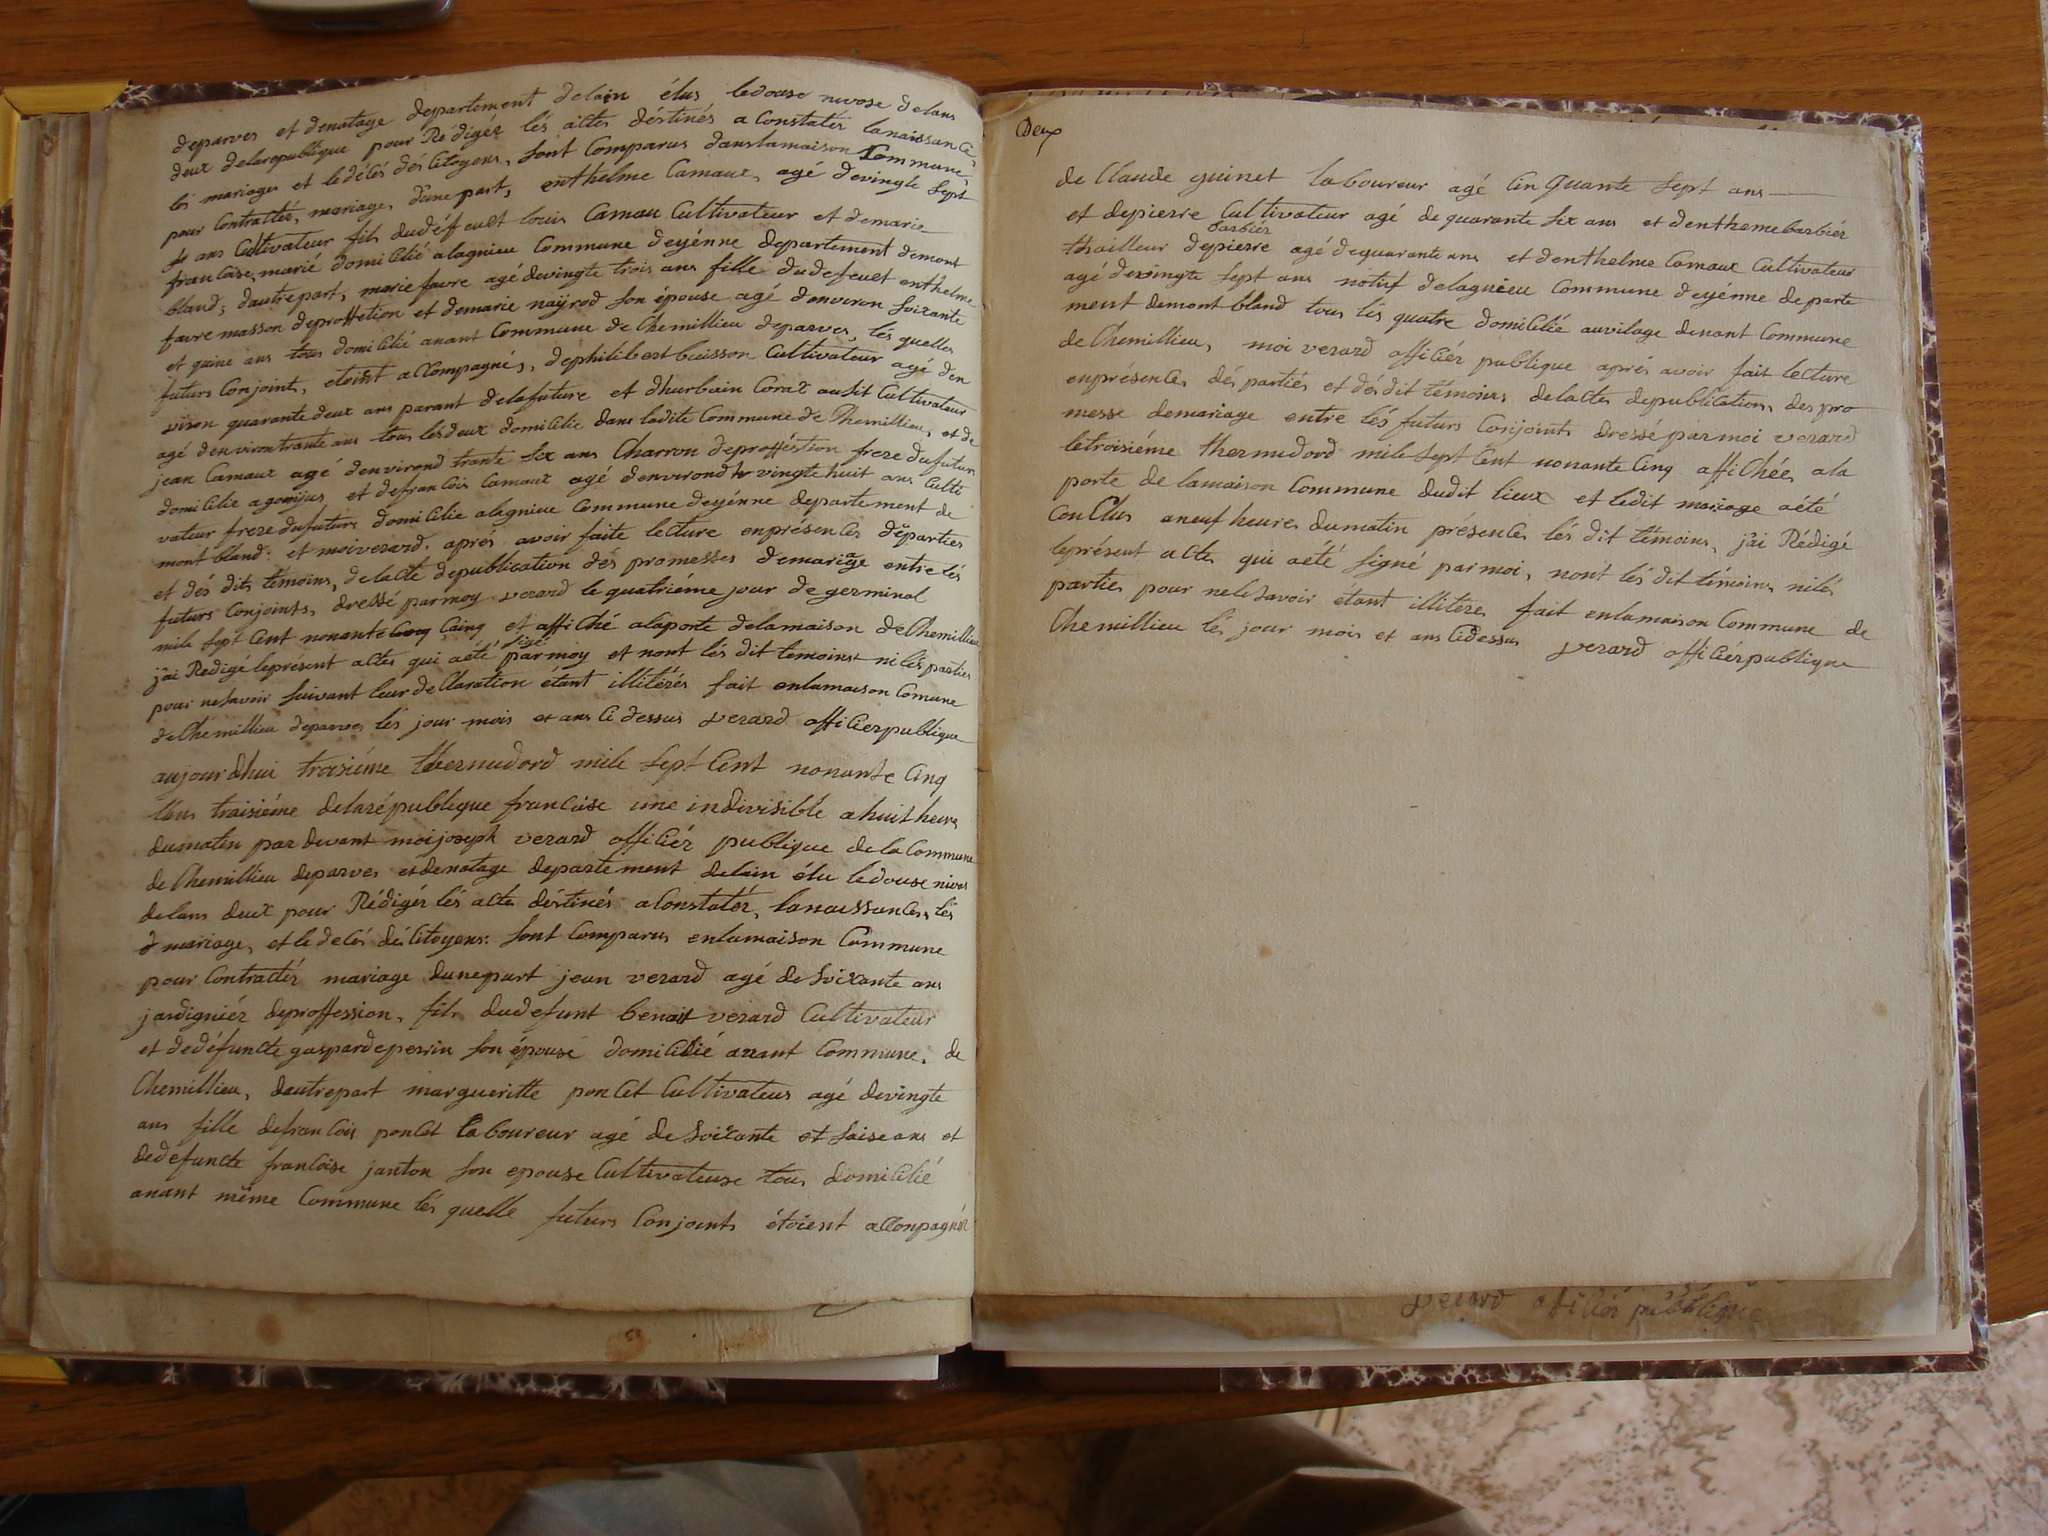 deparves et denatage departement delain élus ledouse nivose delans
deux delarepublique pour Rédigér lés actes déstinés a Constater lanaissance,
lés mariages et le décés dés Citoyens, sont Comparus danslamaison Commune,
pour Contractér, mariage, dune part, enthelme Camaux, agé devingte sept
ans Cultivateur fils dudéfeuet louis Camau Cultivateur et demarie
francoise marié domicilié alagnieu Commune deyénne departement demont
bland; dautrepart, marie favre agé devingte trois ans fille dudefeuet enthelme
favre masson deproffetion et demarie naÿrod son épouse agé denviron soixante
et quine ans tous domicilié anant Commune de Chemillieu deparves, lés quelles
futurs Conjoints, etoint accompagnés, dephilibert buisson Cultivateur agé den
viron quarante deux ans parant delafuture et dhurbain Corax audit Cultivateur
agé denviron trante ans tous lésdeux domicilie dans ladite Commune de Chemillieu, et de
jean Camaux agé denvirond trante six ans Charron deproffétion frere dufutur
domicilie et defrancois Camaux agé denvirond vingte huit ans Culti
vateur frere dufuturs domicilie alagnieue Commune deyénne departement de
mont bland: et moiverard. aprés avoir faite lecture enprésences départies
et dés dits témoins, delacte depublication dés promesses demariage entre lés
futurs Conjoints, dressé parmoy verard le quatriéme jour de germinal
mile sept Cent nonante Cainq et affiché alaporte delamaison deChemillieu
jai Redigé leprésent actes qui aété signé parmoy et nont lés dit temoins ni les parties
pour nesavoir suivant leur declaration étant illitérés fait enlamaison Comune
de Chemillieu deparves lés jour mois et ans Cidessus verard officierpublique
aujourdhui troisiéme thermudord mile sept Cent nonante Cinq
lans traisiéme delarépublique francoise une indivisible ahuit heures
dumatin par devant moijoseph verard officiér publique de la Commune
de Chemillieu deparves et denatage departement delain élu ledouse nivos
delans deux pour Rédigér lés actes déstinés aConstatér, lanaissances, lés
d mariage, et le décés dés Citoyens: sont Comparus enlamaison Commune
pour Contractér mariage dunepart jean verard agé de soixante ans
jardigniér deproffession, fils dudefunt benoit verard Cultivateur
et dedéfuncte gaspardeperrin son épouse domicilié anant Commune, de
Chemillieu, dautrepart margueritte poncet Cultivateus agé devingte
ans fille defrancois poncet laboureur agé de soixante et saise ans et
dedefuncte francoise janton son epouse Cultivateuse tous domicilié
anant même Commune lés quelle futurs Conjoints étoient acconpagnér
Deux
de Claude guinet laboureur agé Cinquante sept ans
et depierre Cultivateur agé de quarante six ans et denthemebarbiér
barbier
thailleur depierre agé dequarante ans et denthelme Camaux Cultivateur
agé devingte sept ans notif delagnieu Commune deyénne departe
ment demont bland tous lés quatre domicilié auvilage denant Commune
de Chemillieu, moi verard officiér publique aprés avoir fait lecture
enprésences dés partiés et dés dit témoins delactes depublications des pro
messe demariage entre lés futurs Conjoints dressé parmoi verard
letroisiéme thermudord mile sept Cent nonante Cinq affichée ala
porte de lamaison Commune dudit lieux et ledit mariage aété
Conclus aneuf heures dumatin présences lés dit témoins, jai Rédigé
leprésent actes qui aété signé parmoi, nont lés dit témoins nilés
parties pour nelesavoir étant illitéres fait enlamaison Commune de
Chemillieu lés jour mois et ans Cidessus verard officiérpublique
verard officiér publique